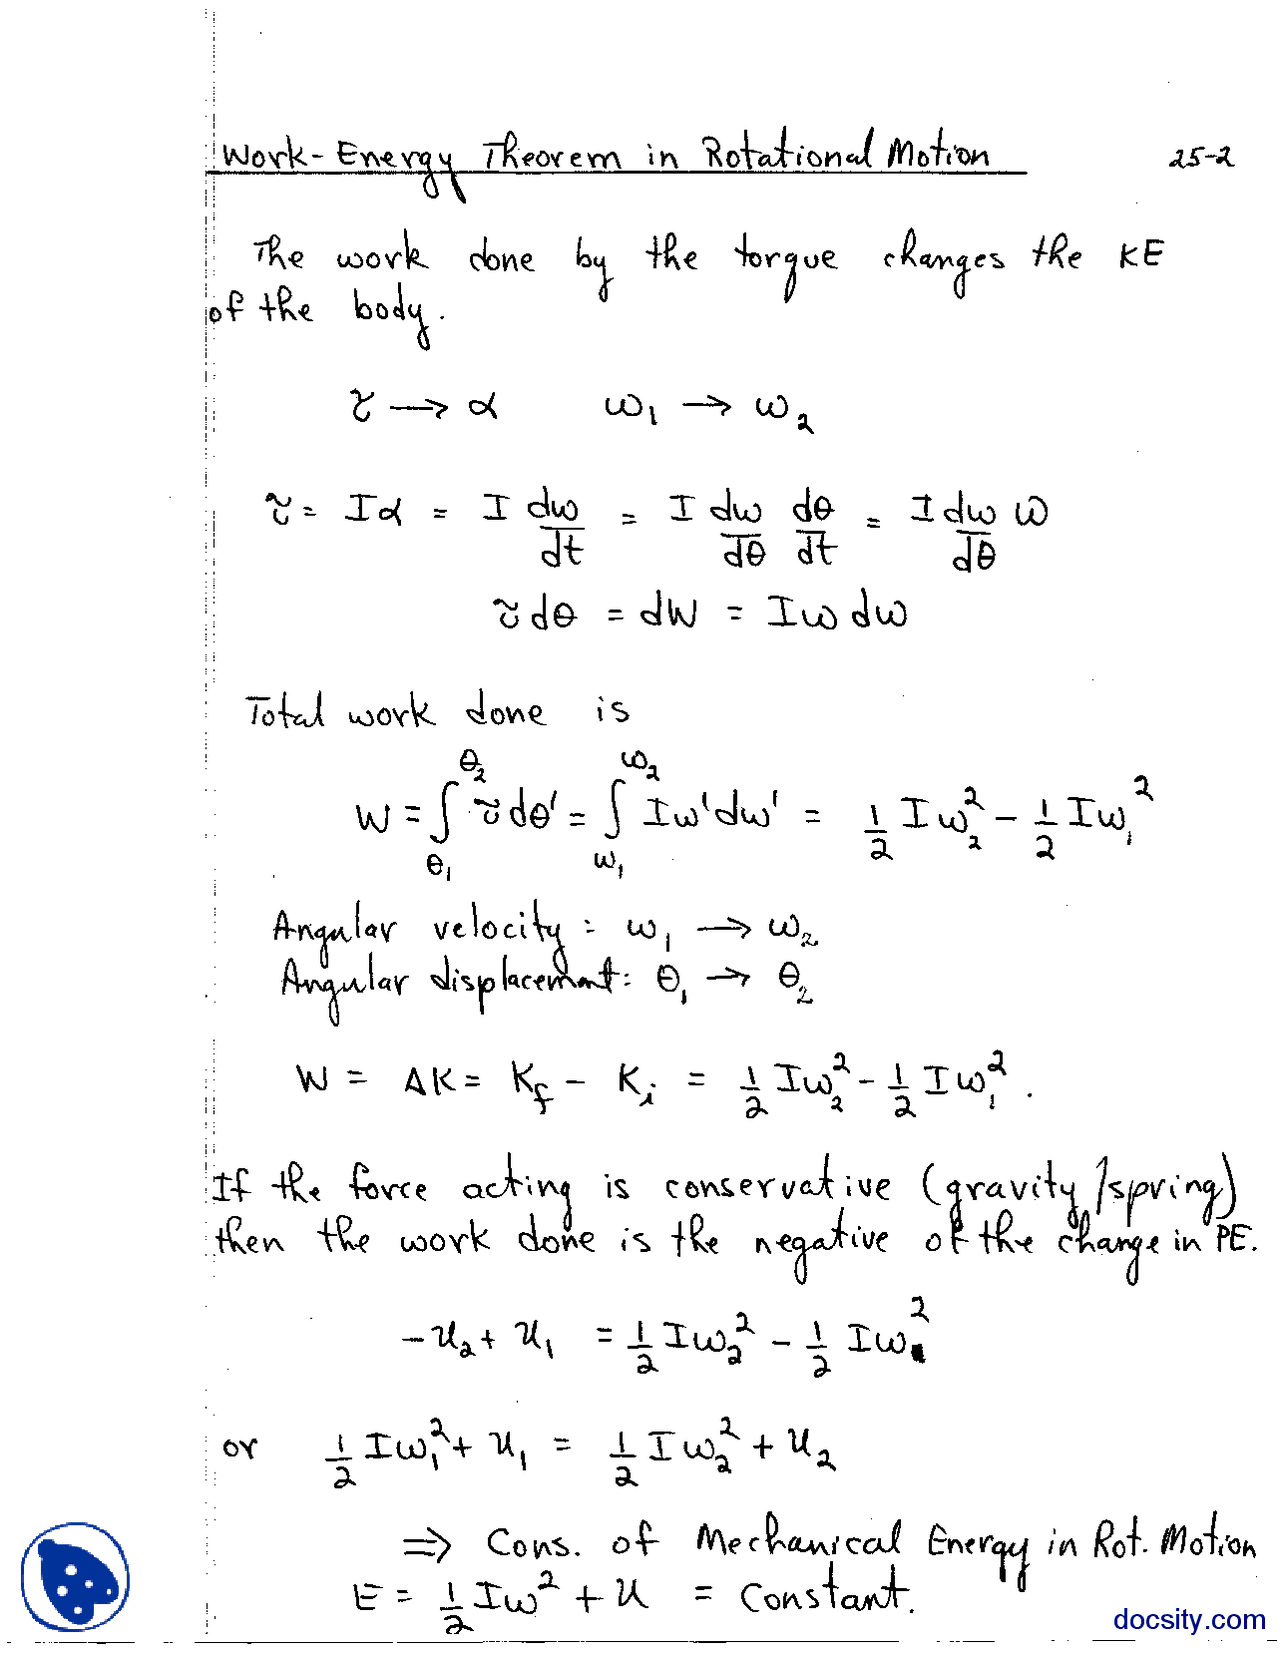 Work-Energy Theorem in Rotational Motion 25-2
The work done by the torque changes the KE
of the body.
τ → α ω₁ → ω₂
τ = Iα = I dω/dt = I dω/dθ dθ/dt = I dω/dθ ω
τdθ = dW = Iω dω
Total work done is
W = ∫_θ₁^θ₂ τdθ' = ∫_ω₁^ω₂ Iω'dω' = 1/2 Iω₂² - 1/2 Iω₁²
Angular velocity: ω₁ → ω₂
Angular displacement: θ₁ → θ₂
W = ΔK = K_f - K_i = 1/2 Iω₂² - 1/2 Iω₁².
If the force acting is conservative (gravity/spring)
then the work done is the negative of the change in PE.
-U₂ + U₁ = 1/2 Iω₂² - 1/2 Iω₁²
or 1/2 Iω₁² + U₁ = 1/2 Iω₂² + U₂
⇒ Cons. of Mechanical Energy in Rot. Motion
E = 1/2 Iω² + U = Constant.
docsity.com